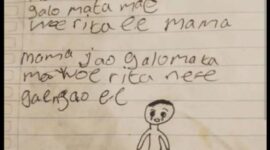 galo mata mae
woe rita ee mama
mama jao galomata
ma woe rita nefe
gaengao ee